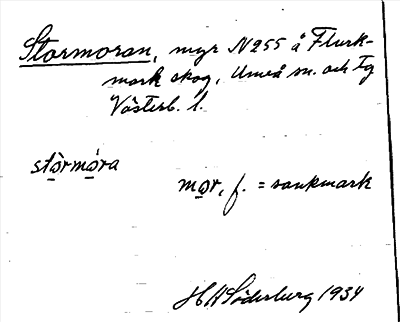 Stormoran, myr N255 å Flurk-
mark skog, Umeå sn. och tg
Västerb. l.
stòrmóra
mor, f. = sankmark
H W Söderburg 1934